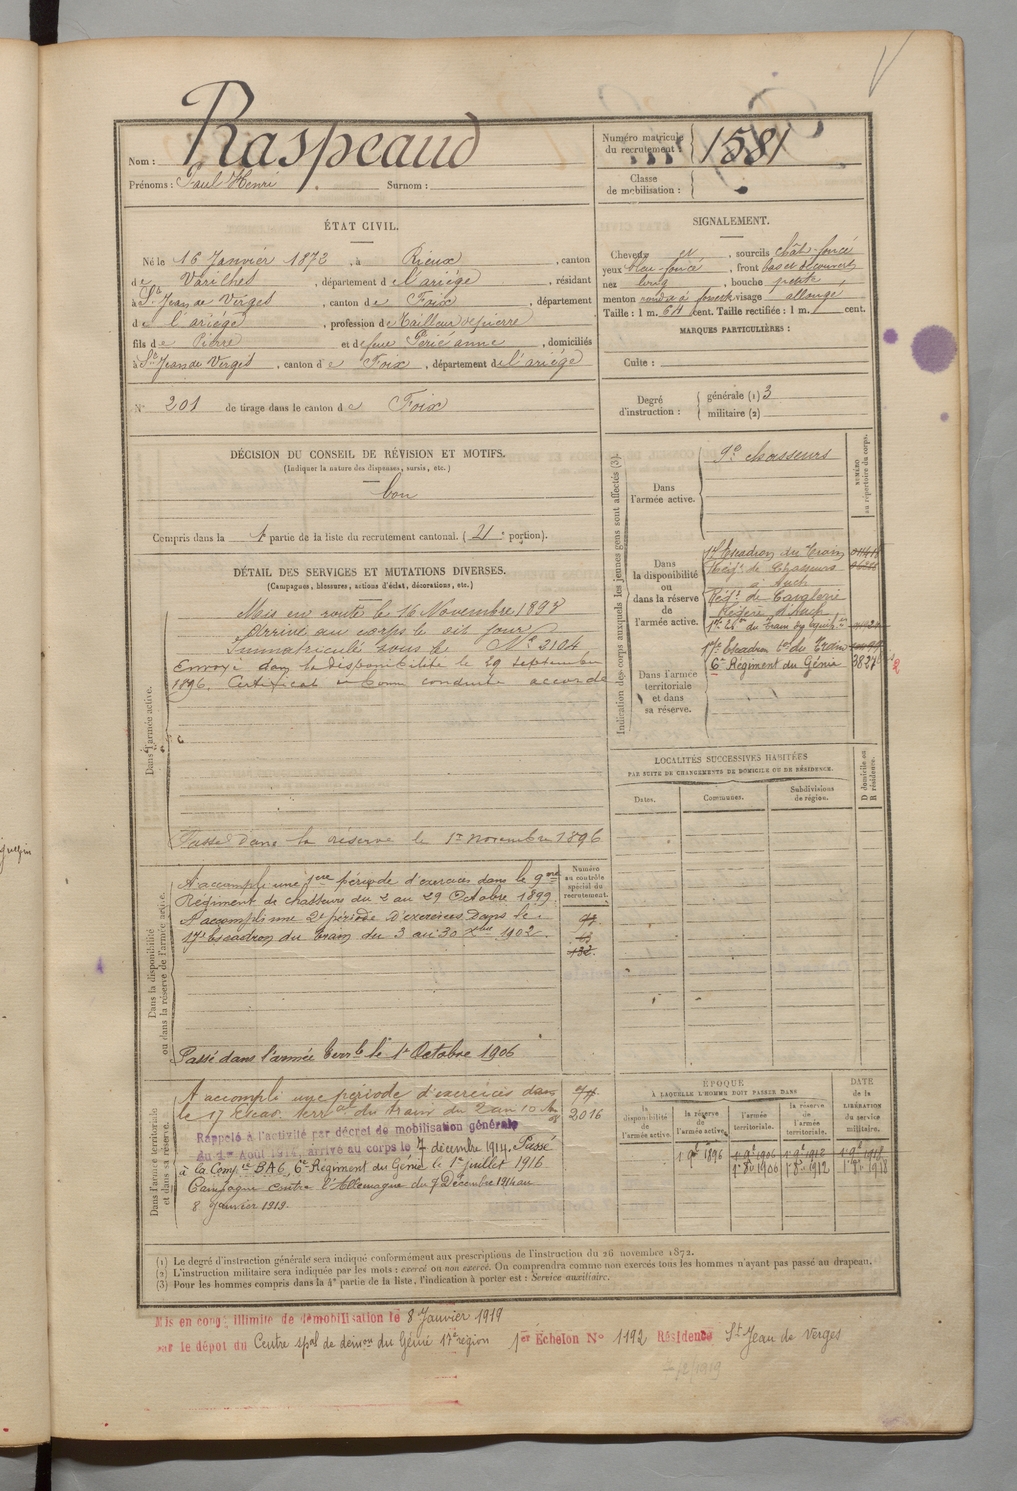 Nom : Raspeaud
Prénoms : Paul Henri Surnom :
Numéro matricule du recrutement : 1581
Classe de mobilisation :
ÉTAT CIVIL.
Né le 16 Janvier 1873, à Rieux, canton
de Varilhes, département de l'ariège, résidant
à St Jean de Verges, canton de Foix, département
de l'ariège, profession de Tailleur de pierre
fils de Pierre et de feue Périé anne, domiciliés
à St Jean de Verges, canton de Foix, département de l'ariège
N° 201 de tirage dans le canton de Foix
SIGNALEMENT.
Cheveux et, sourcils chât-foncé
yeux bleu-foncé, front bas et découvert
nez long, bouche petite
menton rond à fossette visage allongé
Taille : 1 m. 64 cent. Taille rectifiée : 1 m. cent.
MARQUES PARTICULIÈRES :
Cuite :
Degré d'instruction : générale (1) 3
militaire (2)
DÉCISION DU CONSEIL DE RÉVISION ET MOTIFS.
(Indiquer la nature des dispenses, sursis, etc.)
bon
Compris dans la 1e partie de la liste du recrutement cantonal. (2e portion).
DÉTAIL DES SERVICES ET MUTATIONS DIVERSES.
(Campagnes, blessures, actions d'éclat, décorations, etc.)
Dans l'armée active.
Mis en route le 16 Novembre 1894
Arrivé au corps le dit jour
Immatriculé sous le N° 2104
Envoyé dans la disponibilité le 29 septembre
1896. Certificat de bonne conduite accordé
Passé dans la réserve le 1er novembre 1896
Dans la disponibilité ou dans la réserve de l'armée active.
A accompli une 1ere période d'exercices dans le 9eme
Régiment de chasseurs du 2 au 29 Octobre 1899.
A accompli une 2e période d'exercices dans le
17e Escadron du Train du 3 au 30 xbre 1902.
Numéro au contrôle spécial du recrutement.
Passé dans l'armée terrle le 1er Octobre 1906
Dans l'armée territoriale et dans sa réserve.
A accompli une période d'exercices dans
le 17 Escad. terral du train du 2 au 10
2016
Rappelé à l'activité par décret de mobilisation générale
du 1er Août 1914, arrivé au corps le 7 décembre 1914. Passé
à la Compie BA6, 6e Régiment du Génie le 1er juillet 1916
Campagne contre l'Allemagne du 7 Décembre 1914 au
8 Janvier 1919.
Indication des corps auxquels les jeunes gens sont affectés (3).
NUMÉRO au répertoire du corps.
Dans l'armée active.
9e chasseurs
Dans la disponibilité ou dans la réserve de l'armée active.
17e Escadron du Train
Régt de Chasseurs
à Auch
Régt de Cavalerie
Légère d'Auch
Dans l'armée territoriale et dans sa réserve.
17e Escadron ter du Train
6e Régiment du Génie
LOCALITÉS SUCCESSIVES HABITÉES
PAR SUITE DE CHANGEMENTS DE DOMICILE OU DE RÉSIDENCE.
Dates. Communes. Subdivisions de région. D domicile ou R résidence.
ÉPOQUE
À LAQUELLE L'HOMME DOIT PASSER DANS
la disponibilité de l'armée active. la réserve de l'armée active. l'armée territoriale. la réserve de l'armée territoriale.
DATE de la LIBÉRATION du service militaire.
1 9bre 1896 1er 9bre 1906 1er 9bre 1912 1er 9bre 1918
1er 8bre 1906 1er 8bre 1912 1er 8bre 1918
(1) Le degré d'instruction générale sera indiqué conformément aux prescriptions de l'instruction du 26 novembre 1872.
(2) L'instruction militaire sera indiquée par les mots : exercé ou non exercé. On comprendra comme non exercés tous les hommes n'ayant pas passé au drapeau.
(3) Pour les hommes compris dans la 4e partie de la liste, l'indication à porter est : Service auxiliaire.
Mis en congé illimité de démobilisation le 8 Janvier 1919
par le dépôt du Centre spal de démon du Génie 17e région 1er Échelon N° 1192 Résidence St Jean de Verges